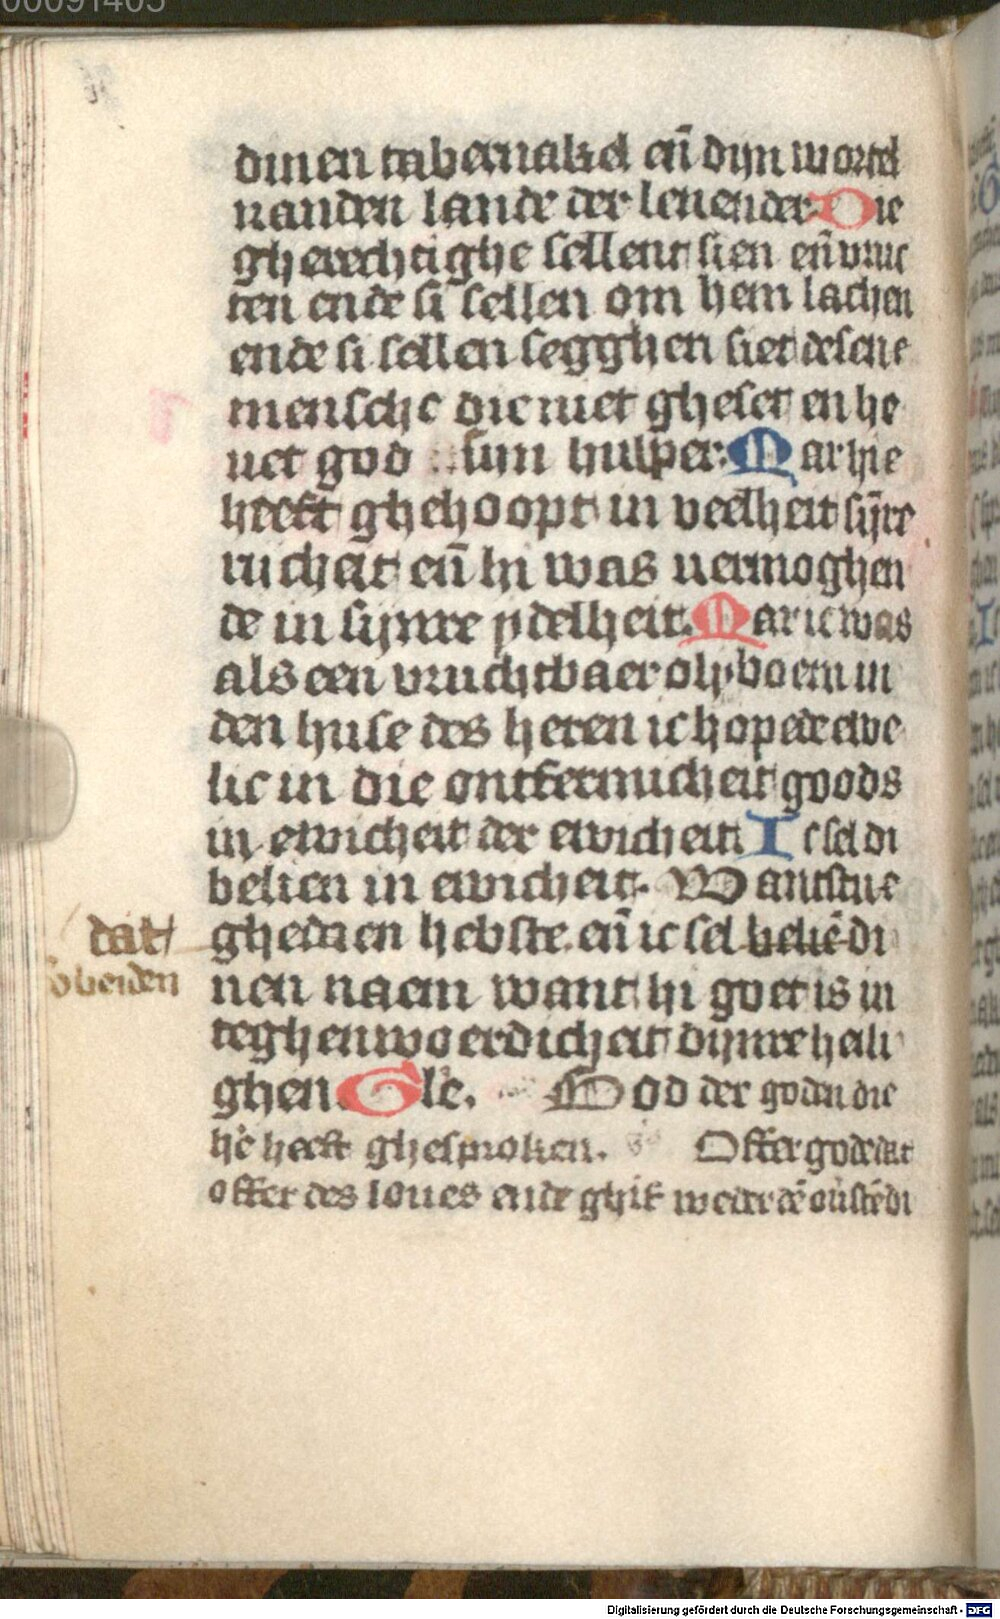 00091405
dinen tabernakel en̄ dijn wortel
uanden lande der leuender Die
gherechtighe sellent sien en̄ vruc
ten ende si sellen om hem lachen
ende si sellen segghen siet dese
mensche die niet gheset en he
uet god sijn hulper Mar hie
heeft ghehoopt in veelheit sijre
richeit en̄ hi was uermoghen
de in sijnre ydelheit Mar ic was
als een vruchtbaer olyboem in
den huse des heren ic hopede ewe
lic in die ontfermicheit goods
in ewicheit der ewicheit Ic sel di
belien in ewicheit Want stue
dat
ghedaen hebste en̄ ic sel beliē di
beiden
nen naem want hi goet is in
teghenwoerdicheit dijnre heili
ghen Gle. God der godn die
he heeft ghesproken. Offer gode dat
offer des loues ende ghif weder dē di
Digitalisierung gefördert durch die Deutsche Forschungsgemeinschaft - DFG